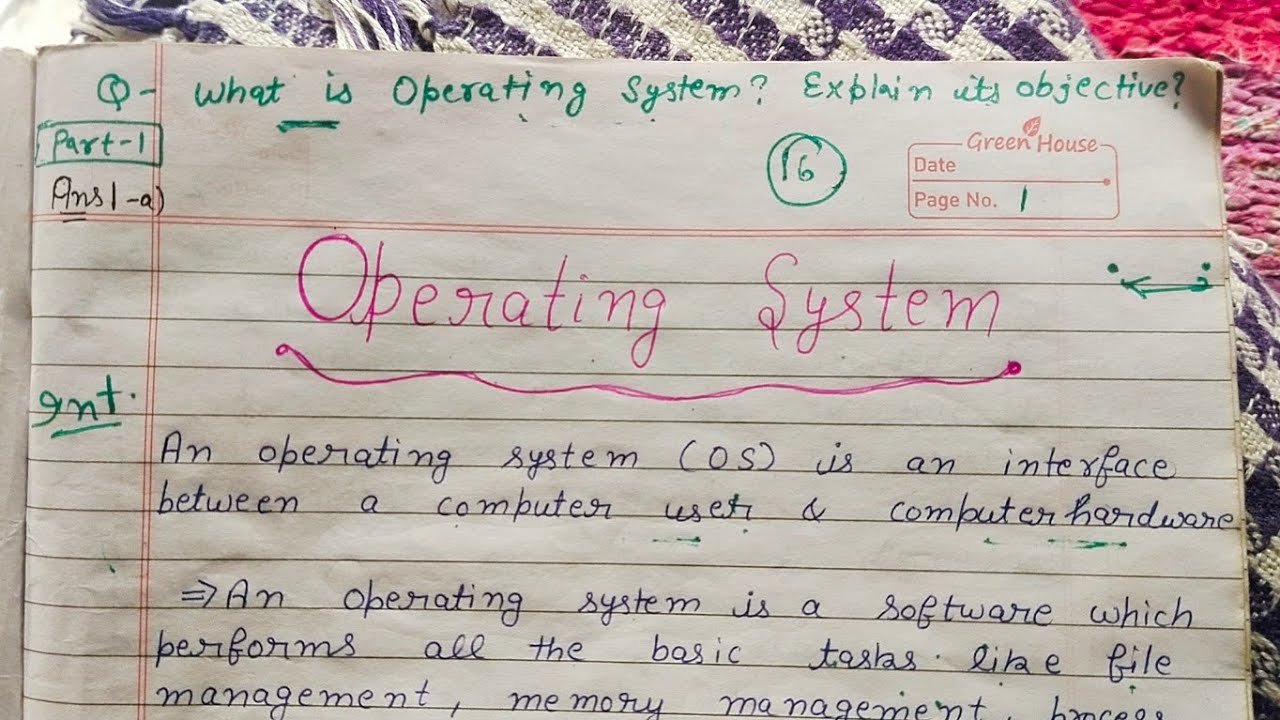 Q- What is Operating System? Explain its objective?
Part-1
16
Green House
Date
Page No. 1
Ans1-a)
Operating System
Int.
An operating system (OS) is an interface
between a computer user & computer hardware
⇒ An operating system is a software which
performs all the basic tasks like file
management, memory management, process